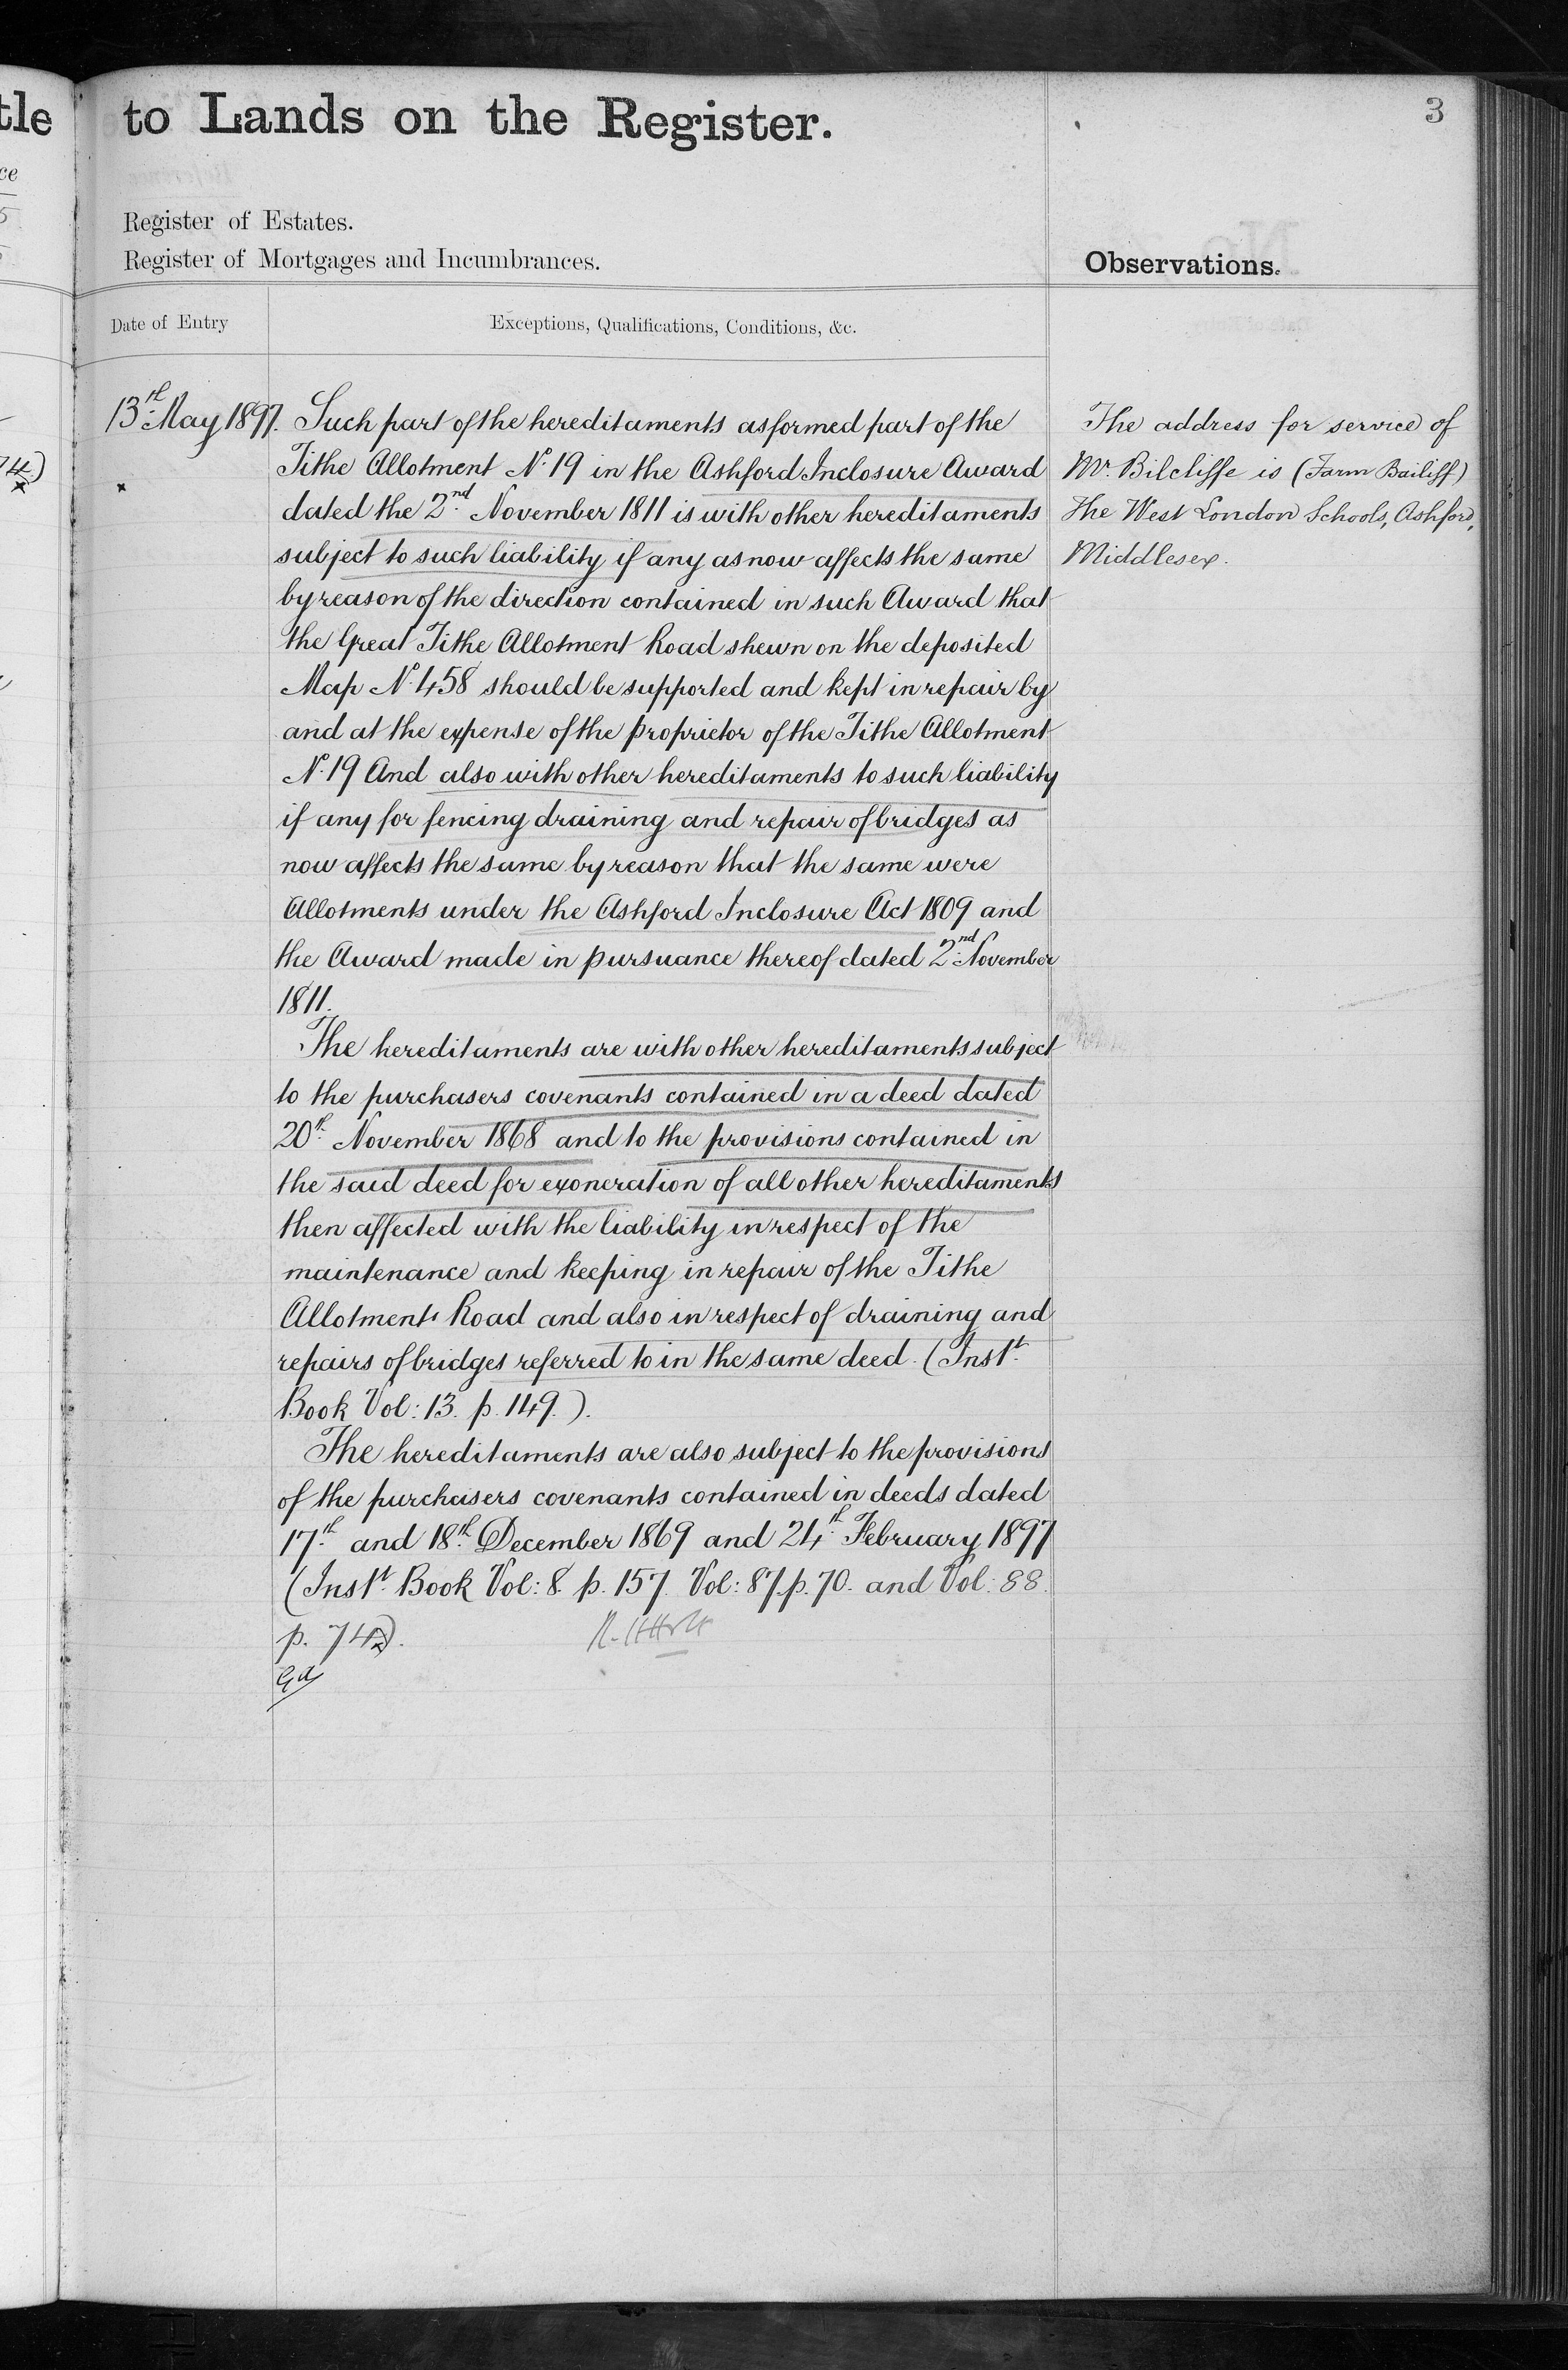 tle
to Lands on the Register.
3
ce
Register of Estates.
Register of Mortgages and Incumbrances.
Observations.
Date of Entry
Exceptions, Qualifications, Conditions, &c.
13th May 1897.
Such part of the hereditaments as formed part of the
Tithe Allotment No. 19 in the Ashford Inclosure Award
dated the 2nd November 1811 is with other hereditaments
subject to such liability if any as now affects the same
by reason of the direction contained in such Award that
the Great Tithe Allotment Road shewn on the deposited
Map No. 458 should be supported and kept in repair by
and at the expense of the proprietor of the Tithe Allotment
No. 19 And also with other hereditaments to such liability
if any for fencing draining and repair of bridges as
now affects the same by reason that the same were
Allotments under the Ashford Inclosure Act 1809 and
the Award made in pursuance thereof dated 2nd November
1811.
The hereditaments are with other hereditaments subject
to the purchasers covenants contained in a deed dated
20th November 1868 and to the provisions contained in
the said deed for exoneration of all other hereditaments
then affected with the liability in respect of the
maintenance and keeping in repair of the Tithe
Allotments Road and also in respect of draining and
repairs of bridges referred to in the same deed. (Instt.
Book Vol: 13. p. 149.).
The hereditaments are also subject to the provisions
of the purchasers covenants contained in deeds dated
17th and 18th December 1869 and 24th February 1897
(Instt. Book Vol: 8. p. 157. Vol: 87. p. 70. and Vol: 88.
p. 74x).
The address for service of
Mr. Bilcliffe is (Farm Bailiff)
The West London Schools, Ashford,
Middlesex.